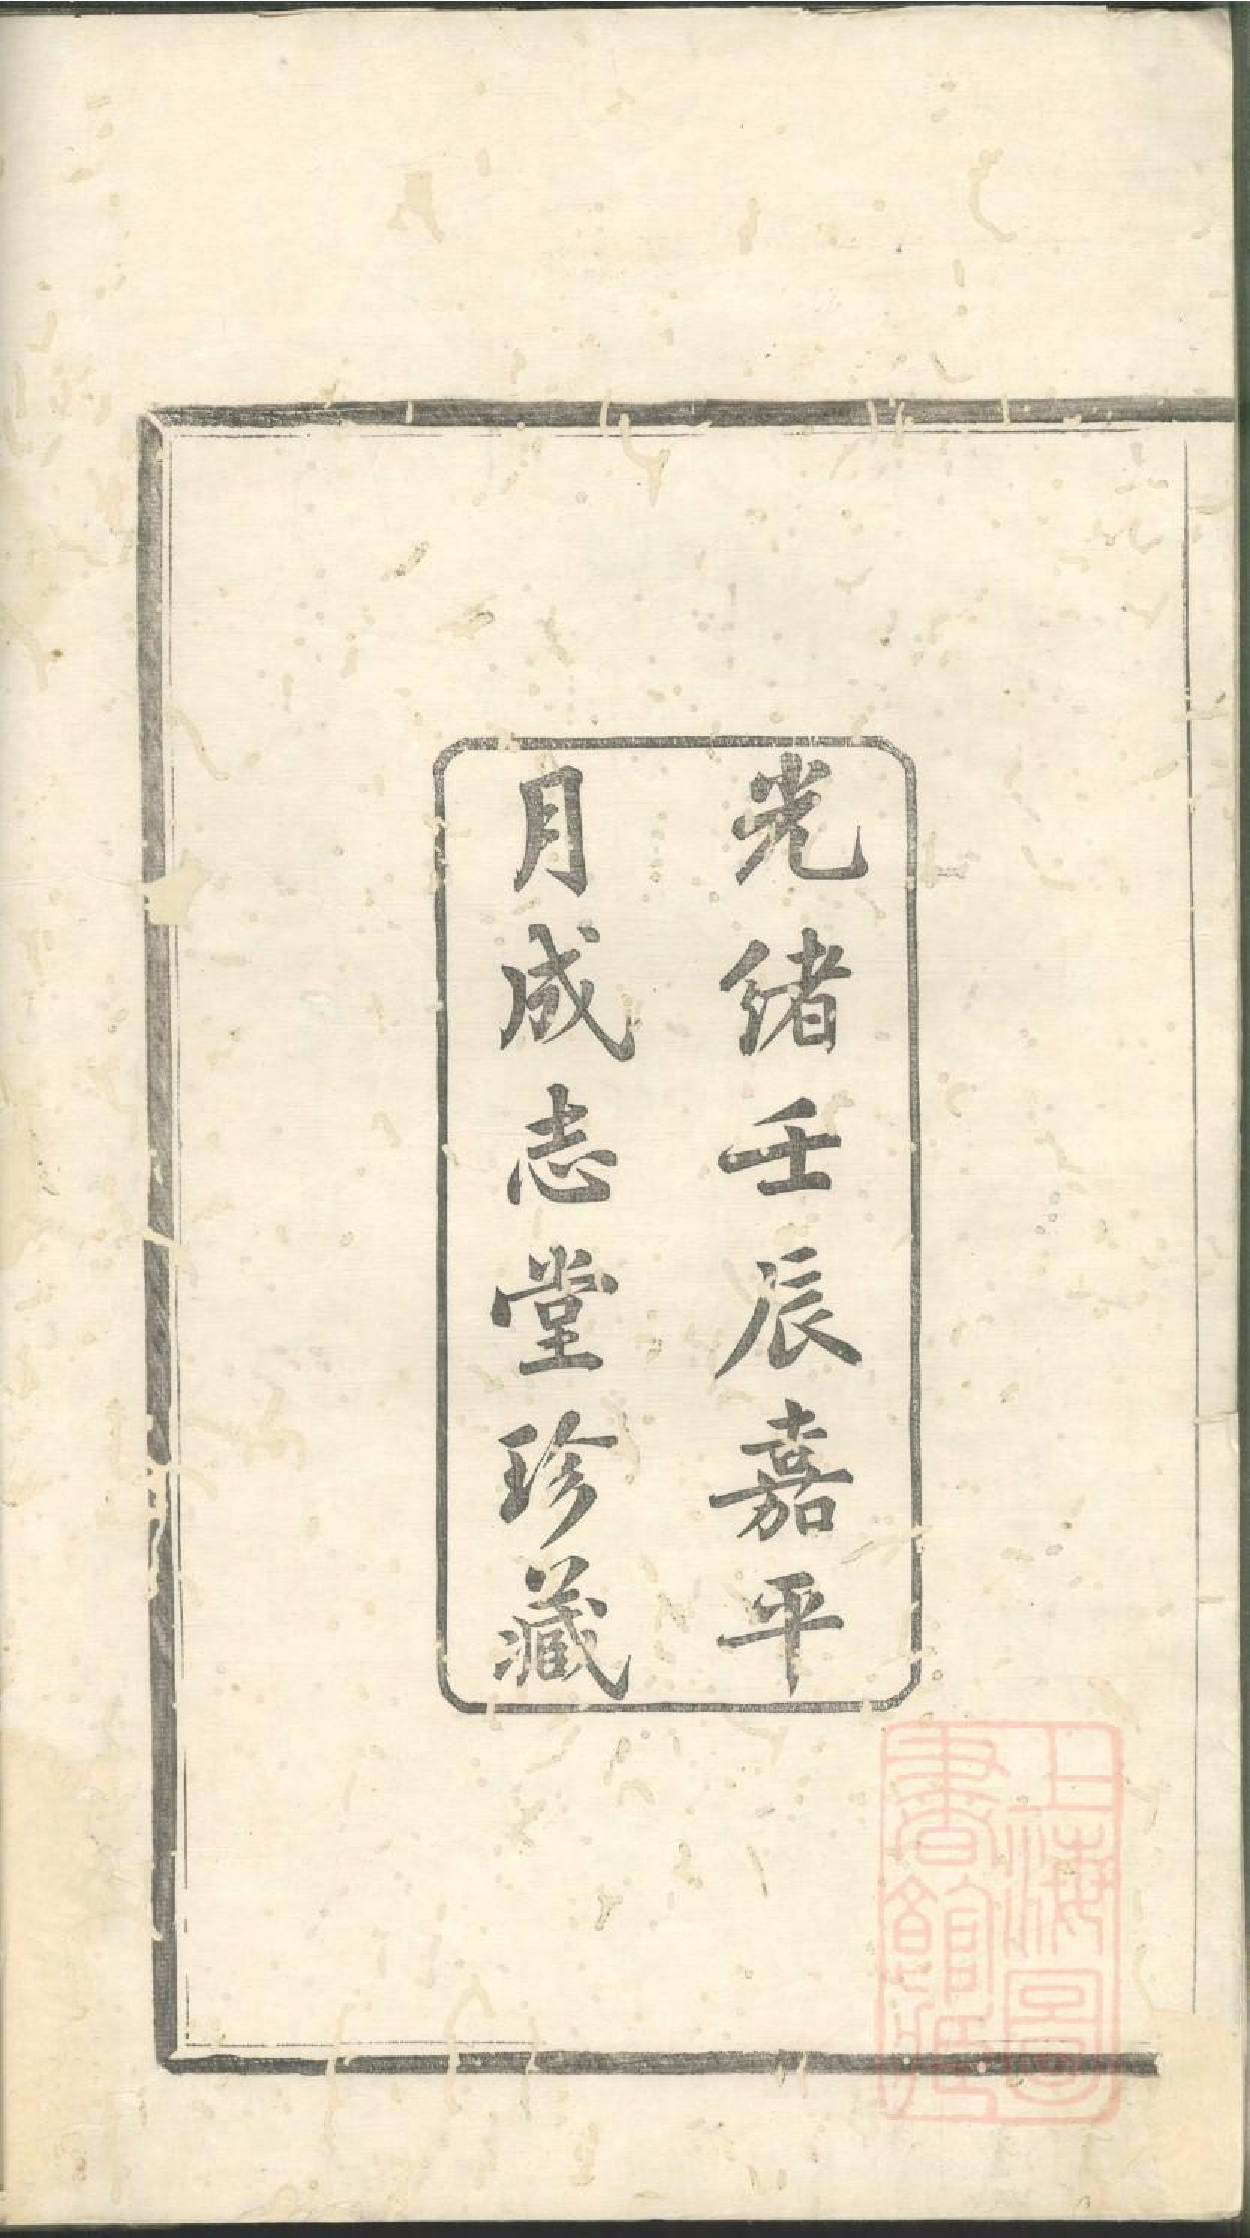 光緒壬辰嘉平
月成志堂珍藏
上海圖
書館藏